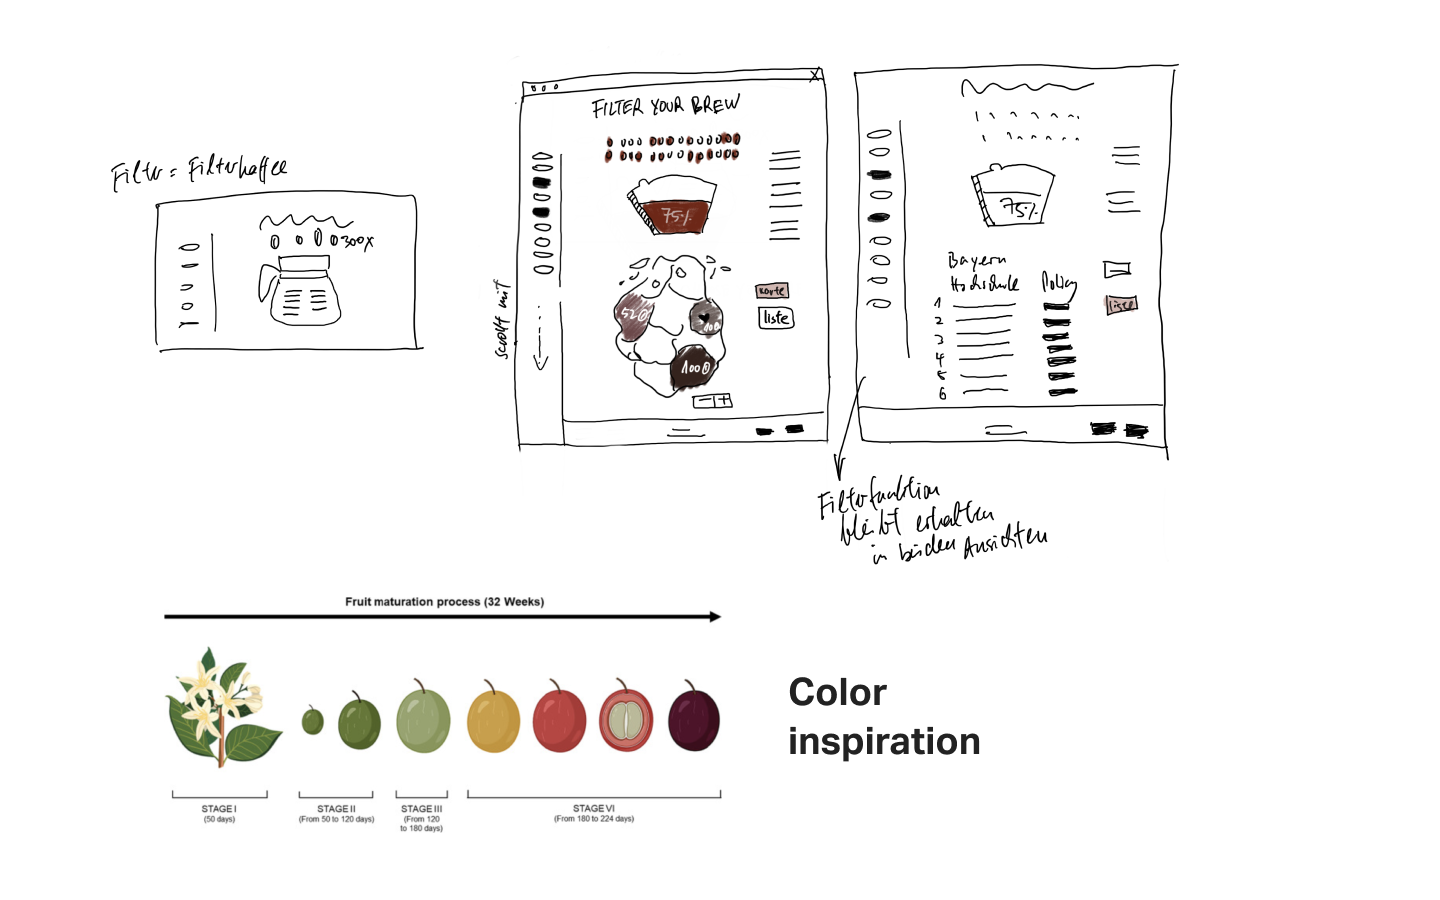 Filter = Filterkaffee
300x
FILTER YOUR BREW
75%
520
100
1000
Karte
liste
- +
scrollt mit
75%
Bayern
Hochschule Policy
1
2
3
4
5
6
liste
Filterfunktion
bleibt erhalten
in beiden Ansichten
Fruit maturation process (32 Weeks)
STAGE I
(50 days)
STAGE II
(From 50 to 120 days)
STAGE III
(From 120
to 180 days)
STAGE VI
(From 180 to 224 days)
Color
inspiration